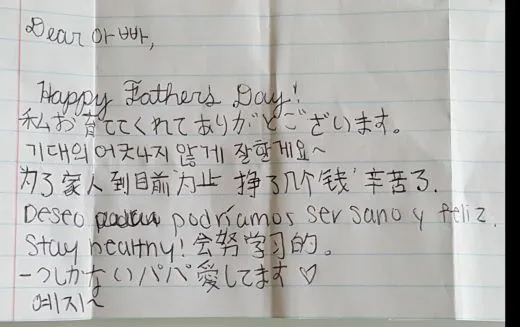 Dear 아빠,
Happy Fathers Day!
私お育ててくれてありがとございます。
기대의 어긋나지 않게 잘할게요~
为了家人到目前为止 挣了几个钱 辛苦了.
Deseo podríamos ser sano y feliz.
Stay healthy! 会努学习的。
一つしかないパパ愛してます♡
예지~